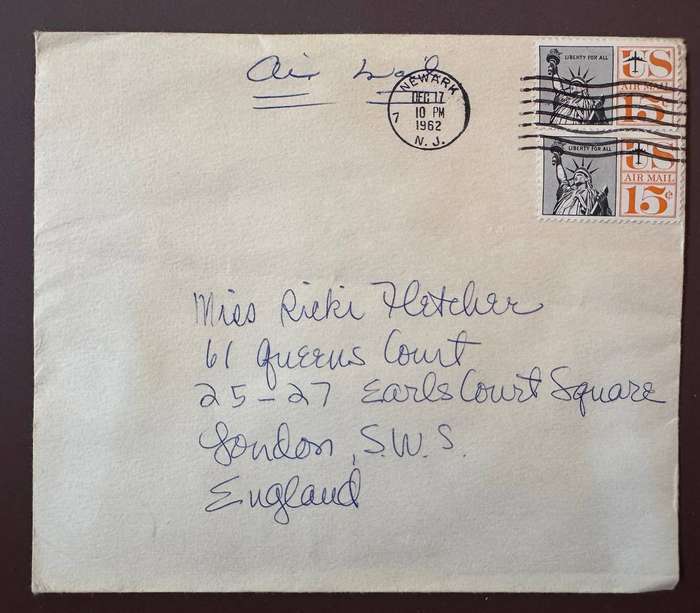 Air Mail
NEWARK
DEC 17
10 PM
1962
7
N. J.
LIBERTY FOR ALL
US
AIR MAIL
15¢
LIBERTY FOR ALL
US
AIR MAIL
15¢
Miss Ricki Fletcher
61 Queens Court
25-27 Earls Court Square
London, S.W.S.
England